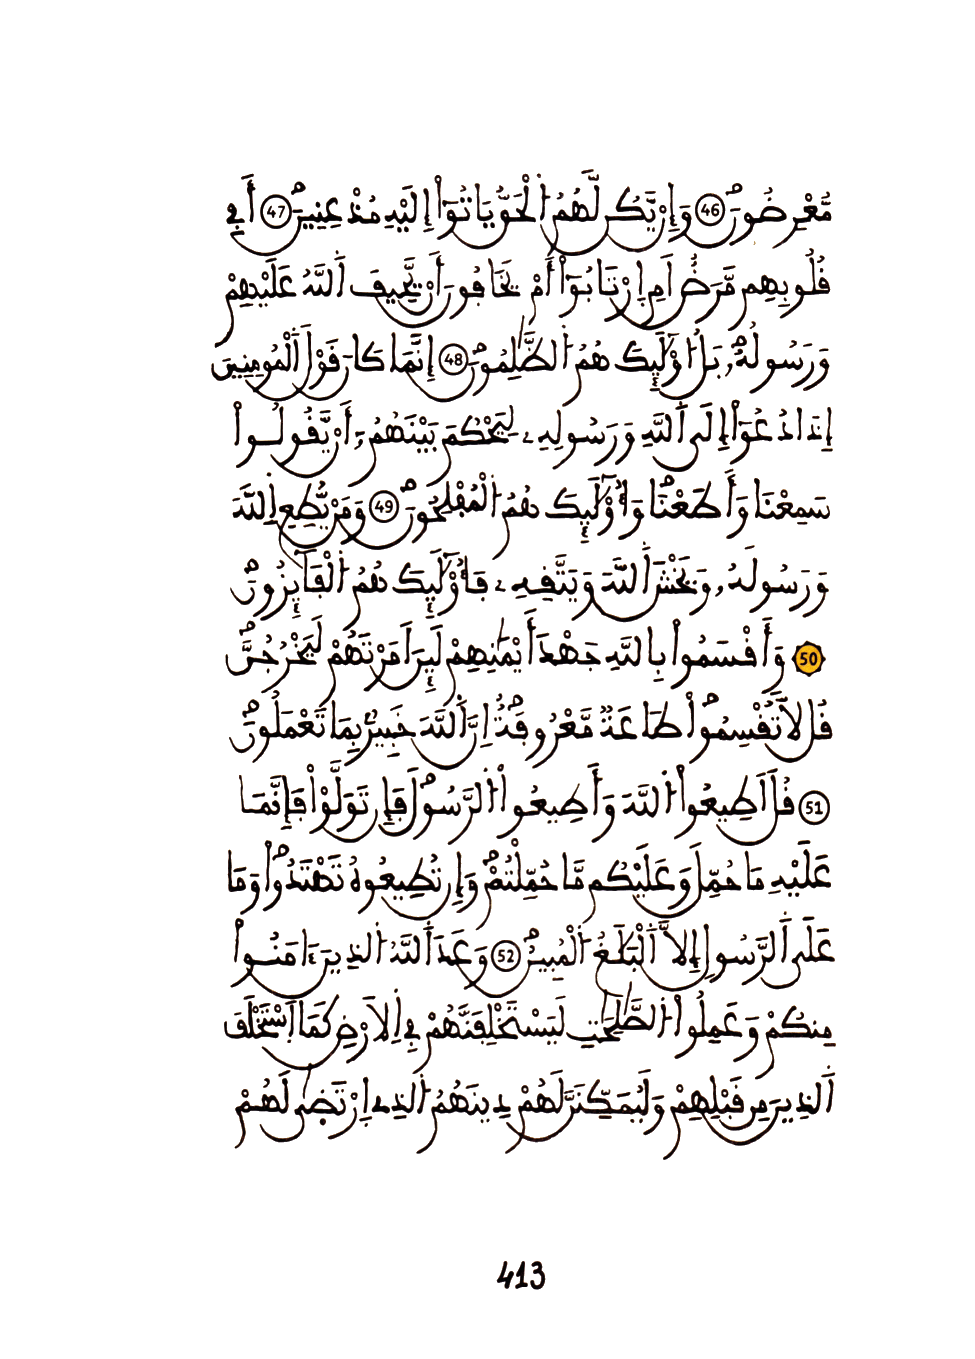 مُّعْرِضُونَ ﴿46﴾ وَإِنْ يَّكُن لَّهُمُ اُ۬لْحَقُّ يَاتُوٓاْ إِلَيْهِ مُذْعِنِينَ ﴿47﴾ أَفِے
قُلُوبِهِم مَّرَضٌ أَمِ اِ۪رْتَابُوٓاْ أَمْ يَخَافُونَ أَنْ يَّحِيفَ اَ۬للَّهُ عَلَيْهِمْ
وَرَسُولُهُۥ بَلُ ا۟وْلَٰٓئِكَ هُمُ اُ۬لظَّٰلِمُونَ ﴿48﴾ إِنَّمَا كَانَ قَوْلَ اَ۬لْمُومِنِينَ
إِذَا دُعُوٓاْ إِلَى اَ۬للَّهِ وَرَسُولِهِۦ لِيَحْكُمَ بَيْنَهُمُۥٓ أَنْ يَّقُولُواْ
سَمِعْنَا وَأَطَعْنَا وَأُوْلَٰٓئِكَ هُمُ اُ۬لْمُفْلِحُونَ ﴿49﴾ وَمَنْ يُّطِعِ اِ۬للَّهَ
وَرَسُولَهُۥ وَيَخْشَ اَ۬للَّهَ وَيَتَّقِهِۦ فَأُوْلَٰٓئِكَ هُمُ اُ۬لْفَآئِزُونَ
﴿50﴾ وَأَقْسَمُواْ بِاللَّهِ جَهْدَ أَيْمَٰنِهِمْ لَئِنَ اَمَرْتَهُمْ لَيَخْرُجُنَّ
قُل لَّا تُقْسِمُواْ طَاعَةٌ مَّعْرُوفَةٌ اِنَّ اَ۬للَّهَ خَبِيرٌۢ بِمَا تَعْمَلُونَ
﴿51﴾ قُلَ اَطِيعُواْ اُ۬للَّهَ وَأَطِيعُواْ اُ۬لرَّسُولَ فَإِن تَوَلَّوْاْ فَإِنَّمَا
عَلَيْهِ مَا حُمِّلَ وَعَلَيْكُم مَّا حُمِّلْتُمْ وَإِن تُطِيعُوهُ تَهْتَدُواْ وَمَا
عَلَى اَ۬لرَّسُولِ إِلَّا اَ۬لْبَلَٰغُ اُ۬لْمُبِينُ ﴿52﴾ وَعَدَ اَ۬للَّهُ اُ۬لذِينَ ءَامَنُواْ
مِنكُمْ وَعَمِلُواْ اُ۬لصَّٰلِحَٰتِ لَيَسْتَخْلِفَنَّهُمْ فِے اِ۬لَارْضِ كَمَا اَ۪سْتَخْلَفَ
اَ۬لذِينَ مِن قَبْلِهِمْ وَلَيُمَكِّنَنَّ لَهُمْ دِينَهُمُ اُ۬لذِے اِ۪رْتَضَىٰ لَهُمْ
413